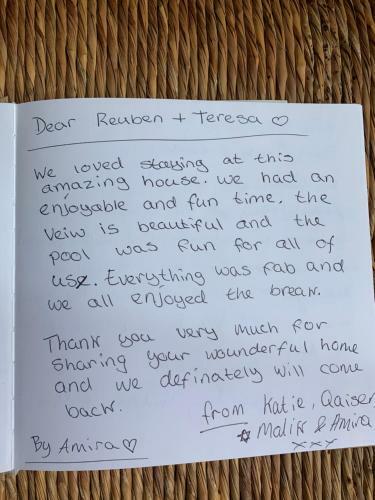 Dear Reuben + Teresa ♡
We loved staying at this
amazing house. We had an
enjoyable and fun time. the
veiw is beautiful and the
pool was fun for all of
us. Everything was fab and
we all enjoyed the break.
Thank you very much for
sharing your wounderful home
and we definately will come
back.
from Katie, Qaiser,
☆ Malik & Amira
xxx
By Amira ♡